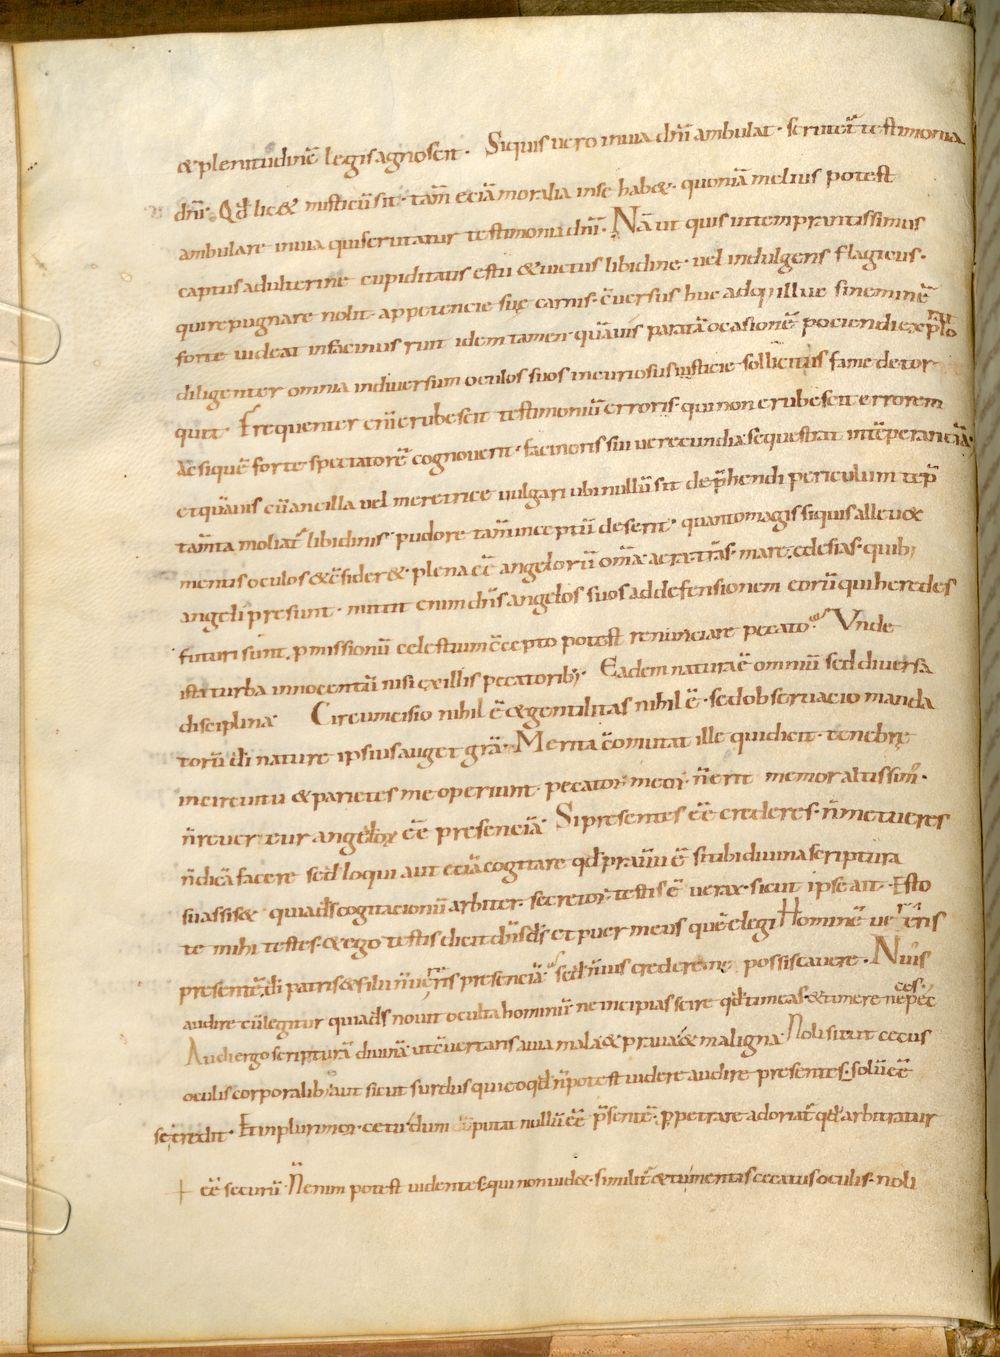 &plenitudinē legis agnoscit. Siquis uero in uia dn̄i ambulat. scrutet᷑ testimonia
dn̄i. Qđ lic& misticū sit. tam̄ eciā moralia inse hab&. quoniā melius potest
ambulare inuia quiscrutatur testimonia dn̄i. Nā ut quis intemprantissimus
captus adulterine cupiditatis estu &uictus libidine. uel indulgens flagicus.
qui repugnare nolit appetencie suę carnis. c̄uersus huc adq; illuc sineminē
forte uideat infacinus ruit idem tamen quāuis paratā ocasionē pociendi
diligenter omnia indiuersum oculos suos incuriosus iusticie sollicitus fame detor
quit. Frequenter eni erubescit testimoniū erroris. qui non erubescit errorem
Ac siquē forte spectatorē cognouerit. facinoris sui uerecundia sequestrat intēperanciā.
et quāuis cū ancilla uel meretrice uulgari ubi nullū sit dep̄hendi periculum
tam̄ita moliat᷑ libidinis. pudore tam̄ inceptū deserit. quantomagis siquis alleu&
mentis oculos &c̄sider& plena eē angelorū om̄a aera. trās. mare. eclesias. quib;
angeli presunt. mittit enim dn̄s angelos suos ad defensionem eorū qui heredes
futuri sunt. p missionū celestium c̄cepto potest renunciare pecato. Vnde
ista turba innocentū nisi ex illis pecatorib;. Eadem natura ē omniū sed diuersa
disciplina. Circumcisio nihil ē &gentilitas nihil ē. sed obseruacio manda
torū di nature ipsius auget grā. Merita c̄mutat ille qui dicit. tenebrę
incircuitu &parietes me operiunt. pecator. n̄ erit memor altissim᷒.
n̄ reuer eur angeloꝝ eē presenciā. Si presentes eē crederes. n̄ metueres
n̄ dicā facere sed loqui aut eciā cogitare qđ prauū ē. sit tibi diuina scriptura
suassis& quia ds̄ cogitacionū arbiter. secretor. testis ē uerax. sicut ipse ait. Esto
te mihi testes. &ego testis dicit dn̄s ds̄ et puer meus quē elegi Hominē
presentē. di patris &filii n̄ presenciā. sed n̄ uis credere ne possis cauere. Nuis
audire cū legitur quia ds̄ nouit oculta hominū ne incipias scire qđ timeas. &timere ne pecces.
Audi ergo scripturā diuinā ut c̄uertaris a uia mala & praua & maligna. Noli sit ut cecus
oculis corporalib; aut sicut surdus qui eo qđ n̄ potest uidere audire presentes. solū eē
se credit. Et in plurimor. cetu dum putat nullū eē p̄sentē. ppetrare adoriat᷑ qđ arbitratur
+ eē securū. N̄ enim potest uidentes. qui non uid&. similit᷑ & tu mentis cecatus oculis. noli